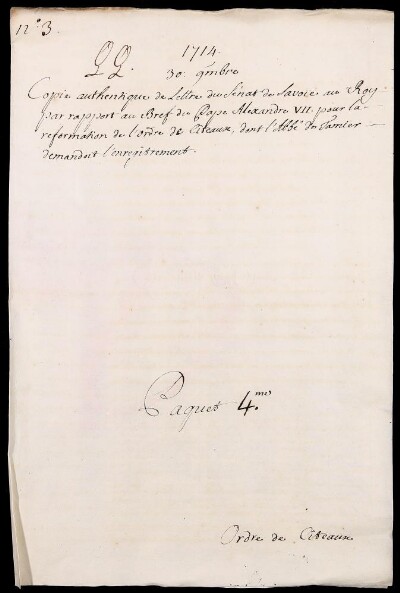 n.° 3.
QQ. 1714
30. 9mbre
Copie authentique de Lettre du Sénat de Savoie au Roy
par rapport au Bref du Pape Alexandre VII. pour la
reformation de l'ordre de Citeaux, dont l'Abbé de Tamier
demandoit l'enregitrement.
Paquet 4.me
Ordre de Citeaux